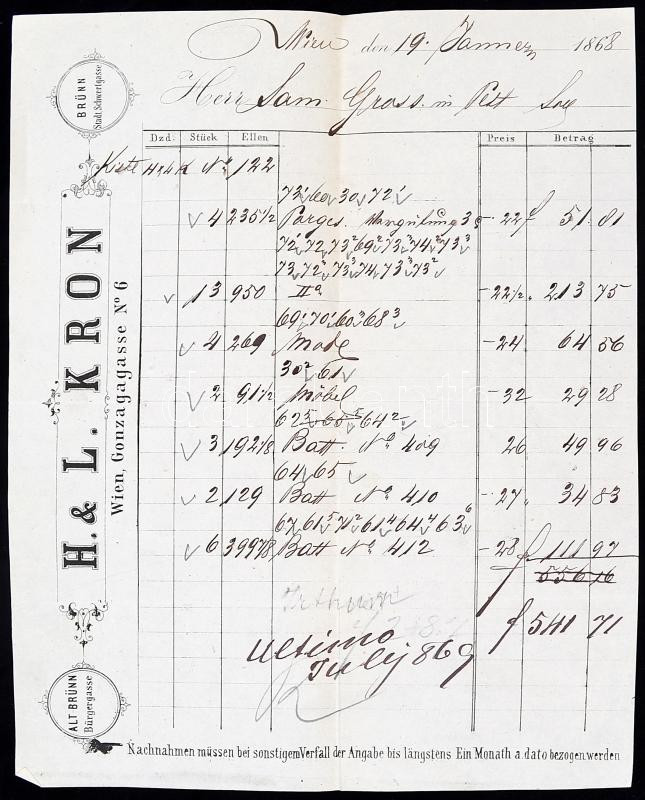 Wien den 19. Janner 1868
Herr Sam. Gross. in Pest
BRÜNN
Stadt Schwertgasse
H. & L. KRON
Wien, Gonzagagasse Nº 6
ALT BRÜNN
Bürgergasse
Dzd. Stück Ellen Preis Betrag
Kiste H&LK Nº 122
73 60 30 72
4 235 1/2 Parges. 22 f 51 81
72 72 73² 69² 73³ 74³ 73³
73 72³ 73³ 74 73³ 73²
13 950 IIª 22 1/2 213 75
69 70 60³ 68³
4 269 Mode 24 64 56
30² 61
2 91 1/2 Möbel 32 29 28
62⁵ 65⁵ 64²
3 192 1/8 Batt. Nº 409 26 49 96
64 65
2 129 Batt Nº 410 27 34 83
67 61⁵ 71² 61⁴ 64⁴ 63⁶
6 399 7/8 Batt Nº 412 28 f 111 97
556 16
Irthum
f 541 71
ultimo
July 869
Nachnahmen müssen bei sonstigem Verfall der Angabe bis längstens Ein Monath a dato bezogen werden